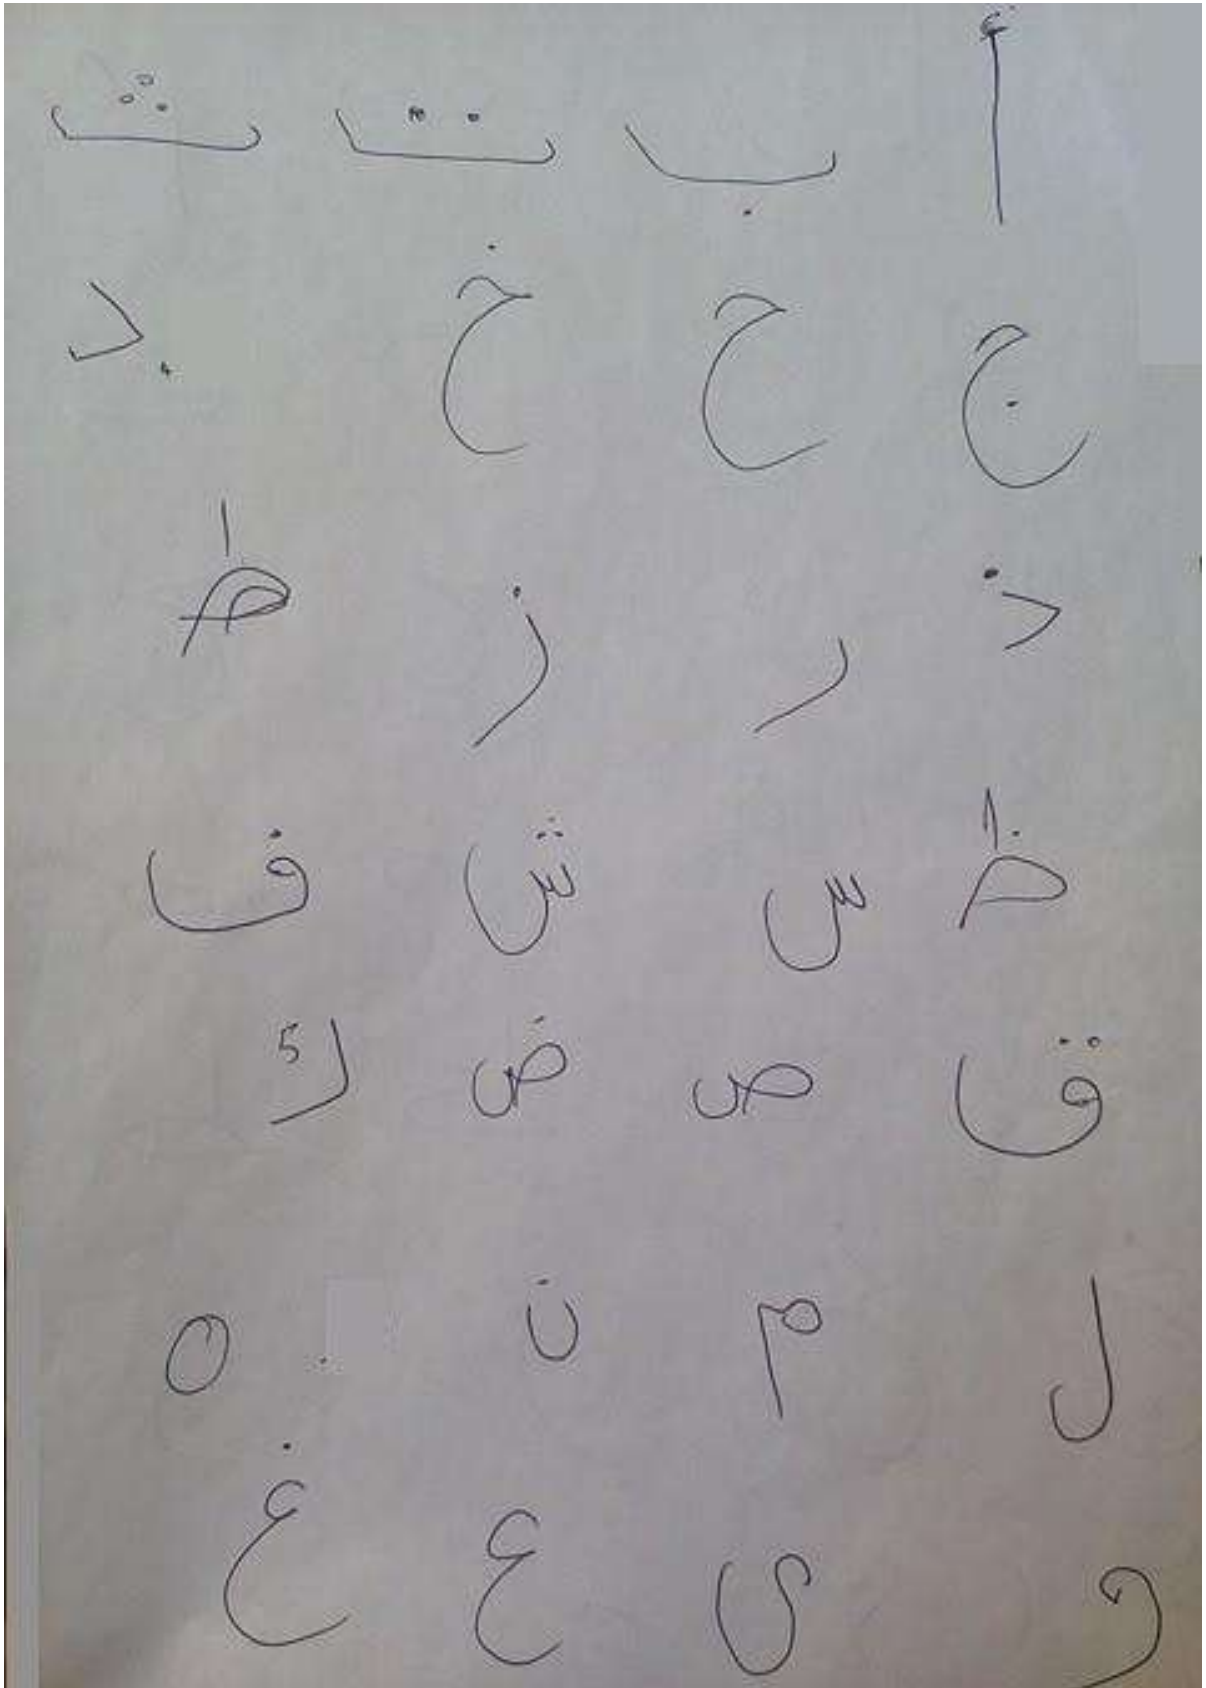 أ ب ت ث
ج ح خ د
ذ ر ز ط
ظ س ش ف
ق ص ض ك
ل م ن ه
و ى ع غ